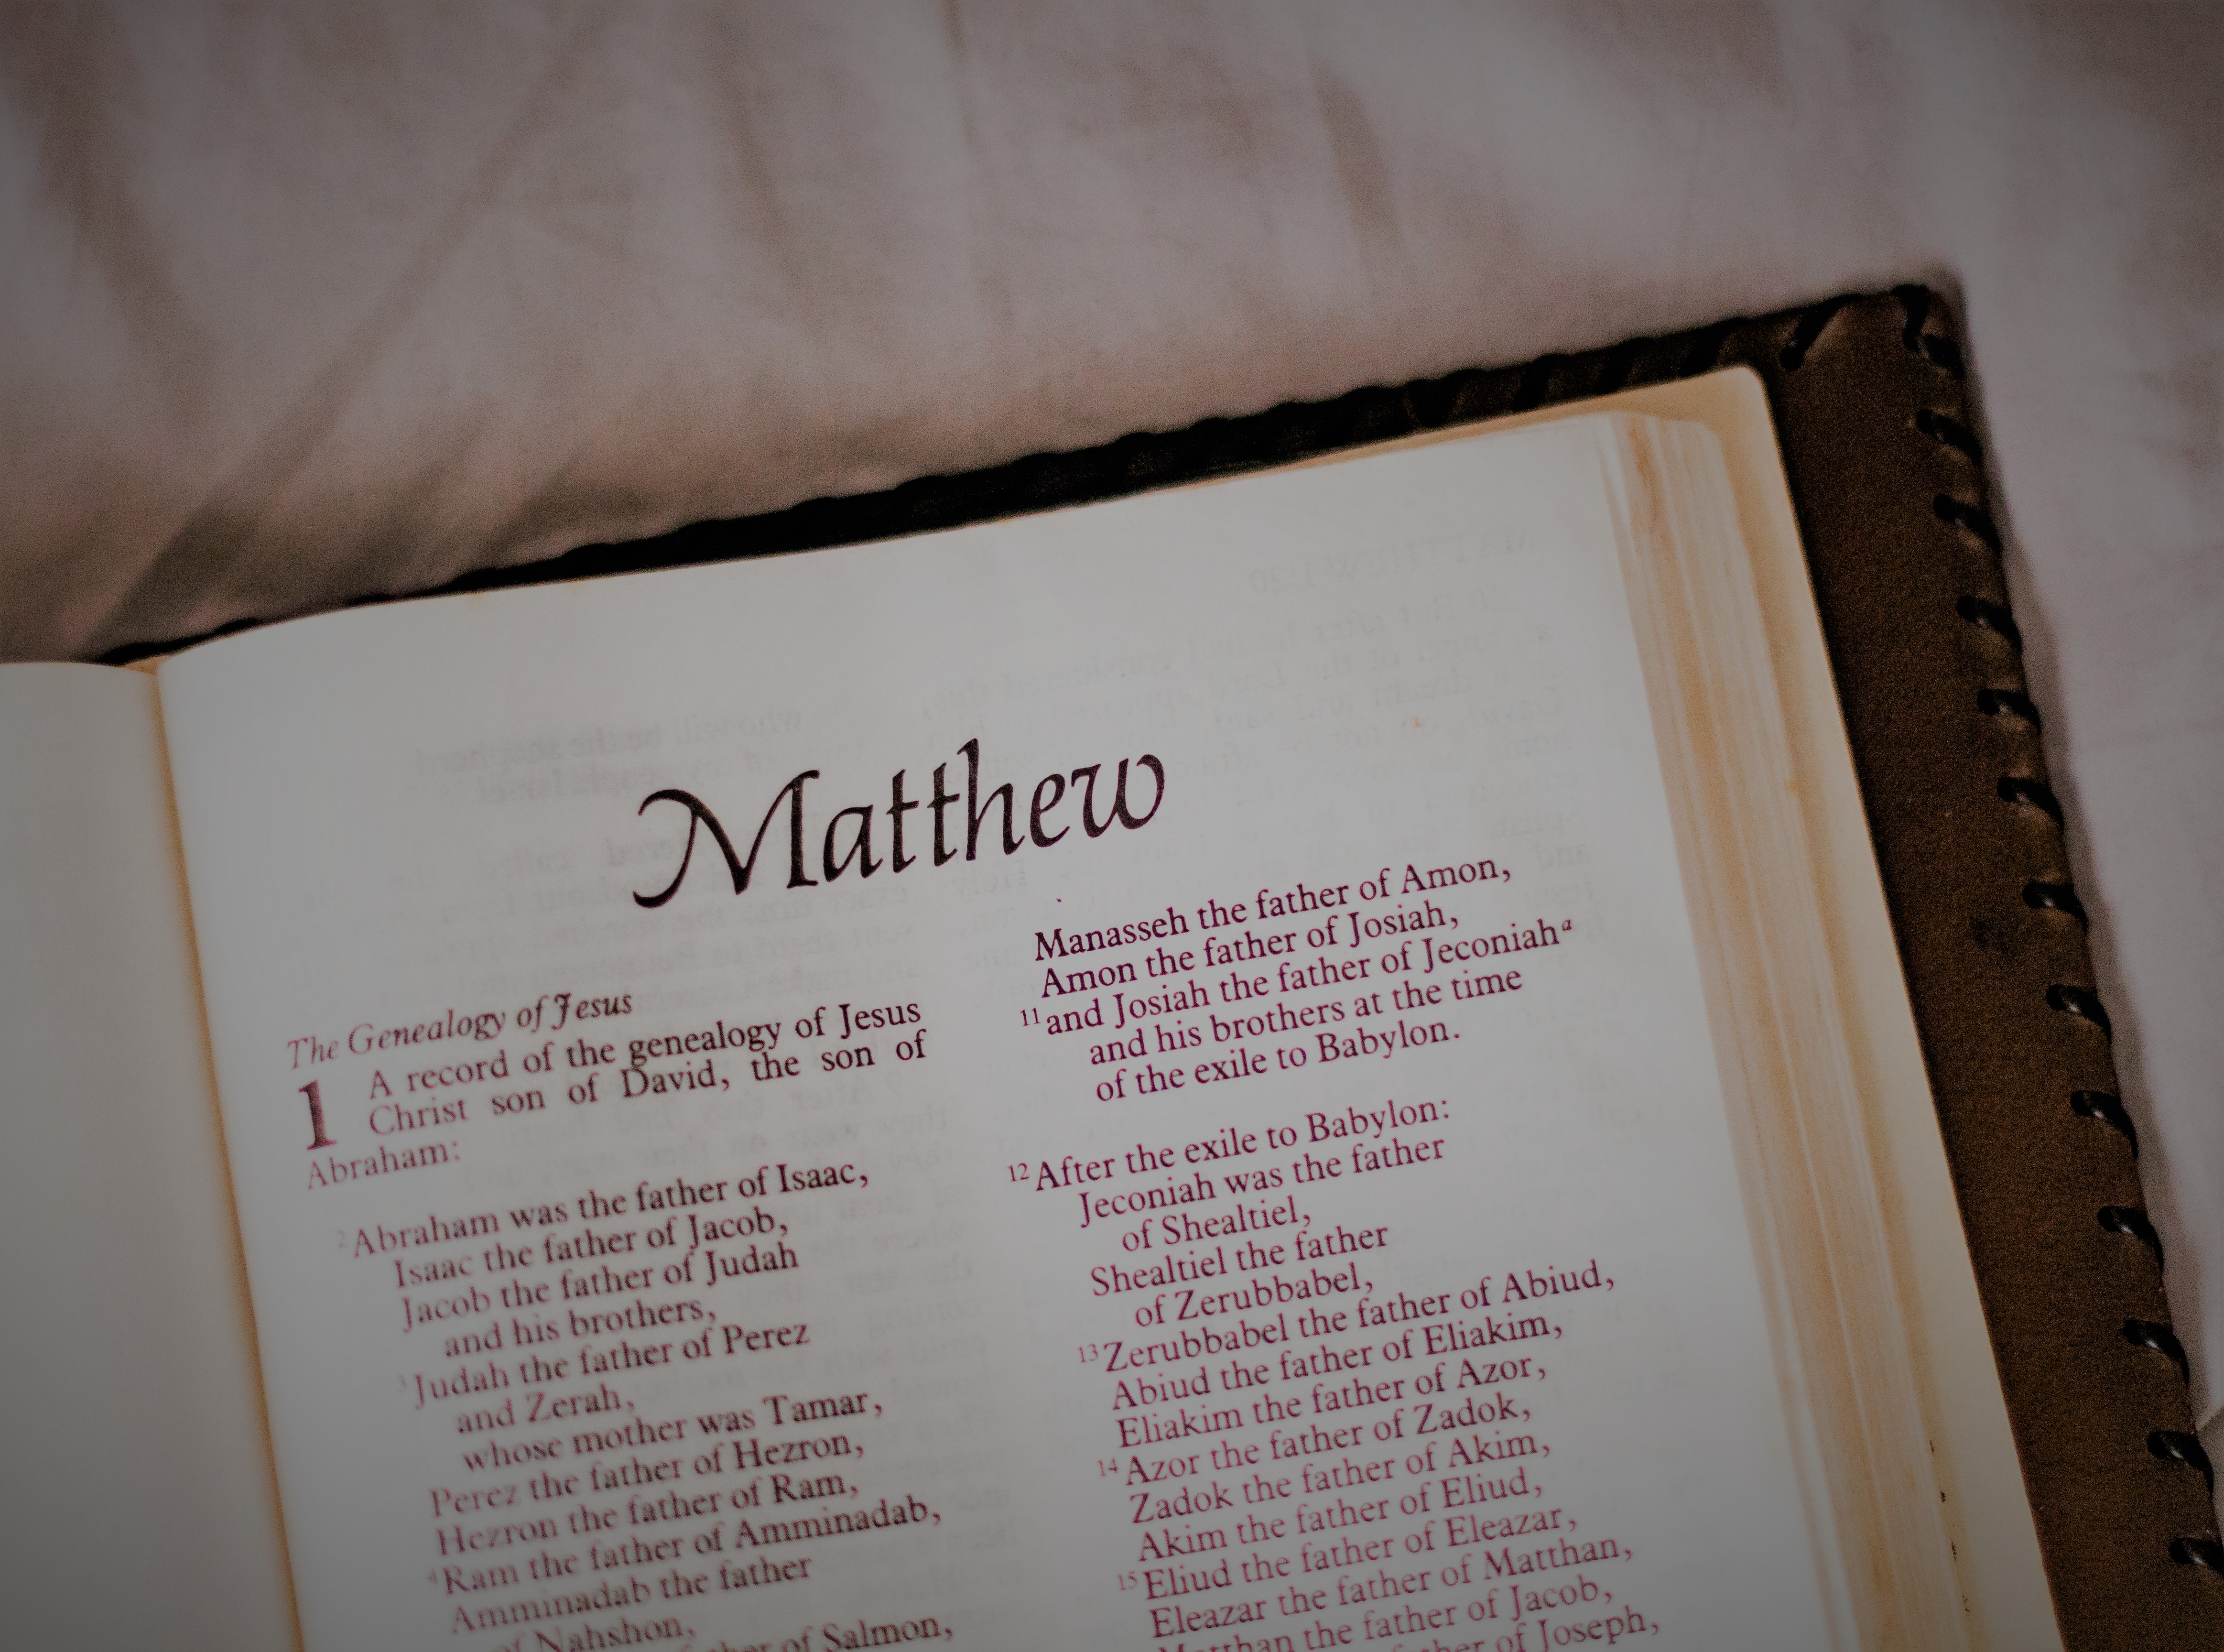 Matthew
The Genealogy of Jesus
1 A record of the genealogy of Jesus
Christ son of David, the son of
Abraham:
2 Abraham was the father of Isaac,
Isaac the father of Jacob,
Jacob the father of Judah
and his brothers,
3 Judah the father of Perez
and Zerah,
whose mother was Tamar,
Perez the father of Hezron,
Hezron the father of Ram,
4 Ram the father of Amminadab,
Amminadab the father
of Nahshon,
of Salmon,
Manasseh the father of Amon,
Amon the father of Josiah,
11 and Josiah the father of Jeconiah a
and his brothers at the time
of the exile to Babylon.
12 After the exile to Babylon:
Jeconiah was the father
of Shealtiel,
Shealtiel the father
of Zerubbabel,
13 Zerubbabel the father of Abiud,
Abiud the father of Eliakim,
Eliakim the father of Azor,
14 Azor the father of Zadok,
Zadok the father of Akim,
Akim the father of Eliud,
15 Eliud the father of Eleazar,
Eleazar the father of Matthan,
Matthan the father of Jacob,
of Joseph,